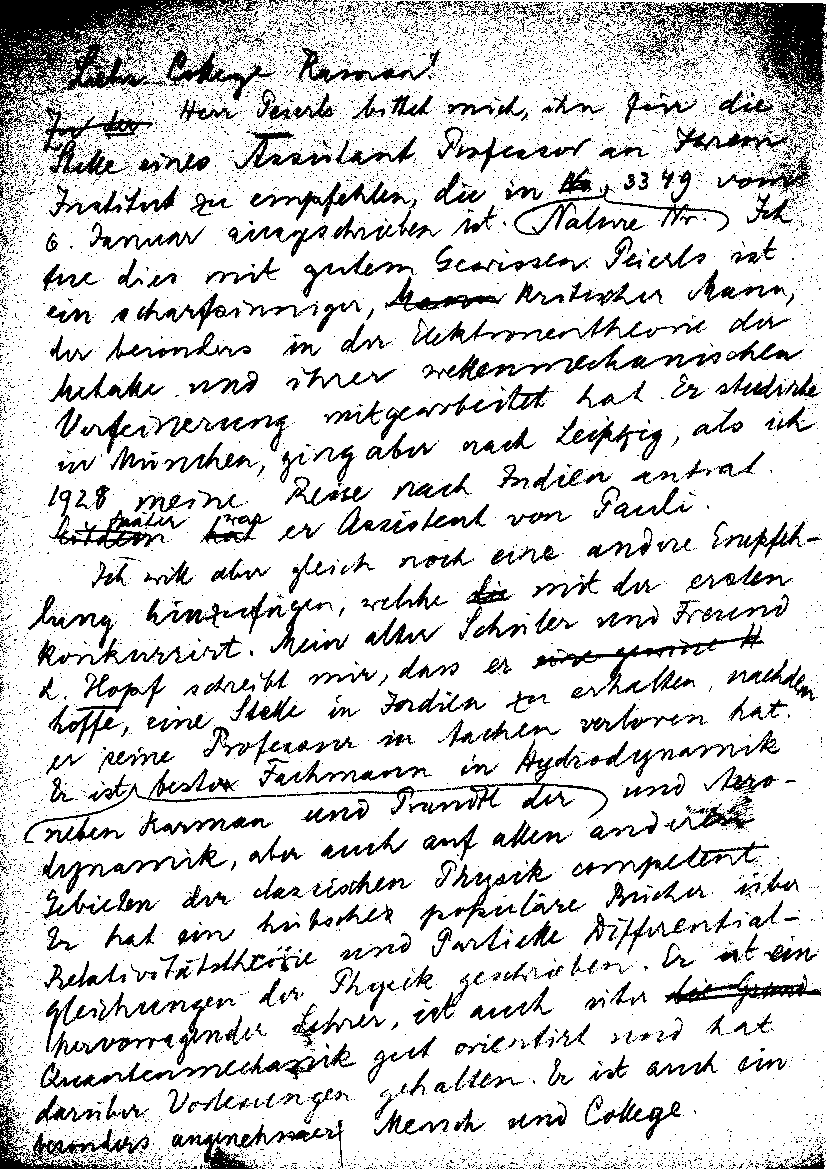 Lieber College Raman!
Herr Peierls bittet mich, ihn für die
Stelle eines Assistant Professor an Ihrem
Institut zu empfehlen, die in No, 3349 vom
6. Januar ausgeschrieben ist. (Nature Nr.) Ich
tue dies mit gutem Gewissen. Peierls ist
ein scharfsinniger, Mann kritischer Mann,
der besonders in der Elektronentheorie der
Metalle und ihrer wellenmechanischen
Verfeinerung mitgearbeitet hat. Er studierte
in München, ging aber nach Leipzig, als ich
1928 meine Reise nach Indien antrat.
seitdem später hat war er Assistent von Pauli.
Ich will aber gleich noch eine andere Empfeh-
lung hinzufügen, welche die mit der ersten
konkurrirt. Mein alter Schüler und Freund
L. Hopf schreibt mir, dass er eine gewisse H
hoffe, eine Stelle in Indien zu erhalten, nachdem
er seine Professur in Aachen verloren hat.
Er ist bester Fachmann in Hydrodynamik
neben Karman und Prandtl der und Aero-
dynamik, aber auch auf allen anderen
Gebieten der classischen Physik competent.
Er hat ein hübsches populäre Bücher über
Relativitätstheorie und Partielle Differential-
gleichungen der Physik geschrieben. Er ist ein
hervorragender Lehrer, ist auch über die Grund
Quantenmechanik gut orientirt und hat
darüber Vorlesungen gehalten. Er ist auch ein
besonders angenehmer Mensch und College.